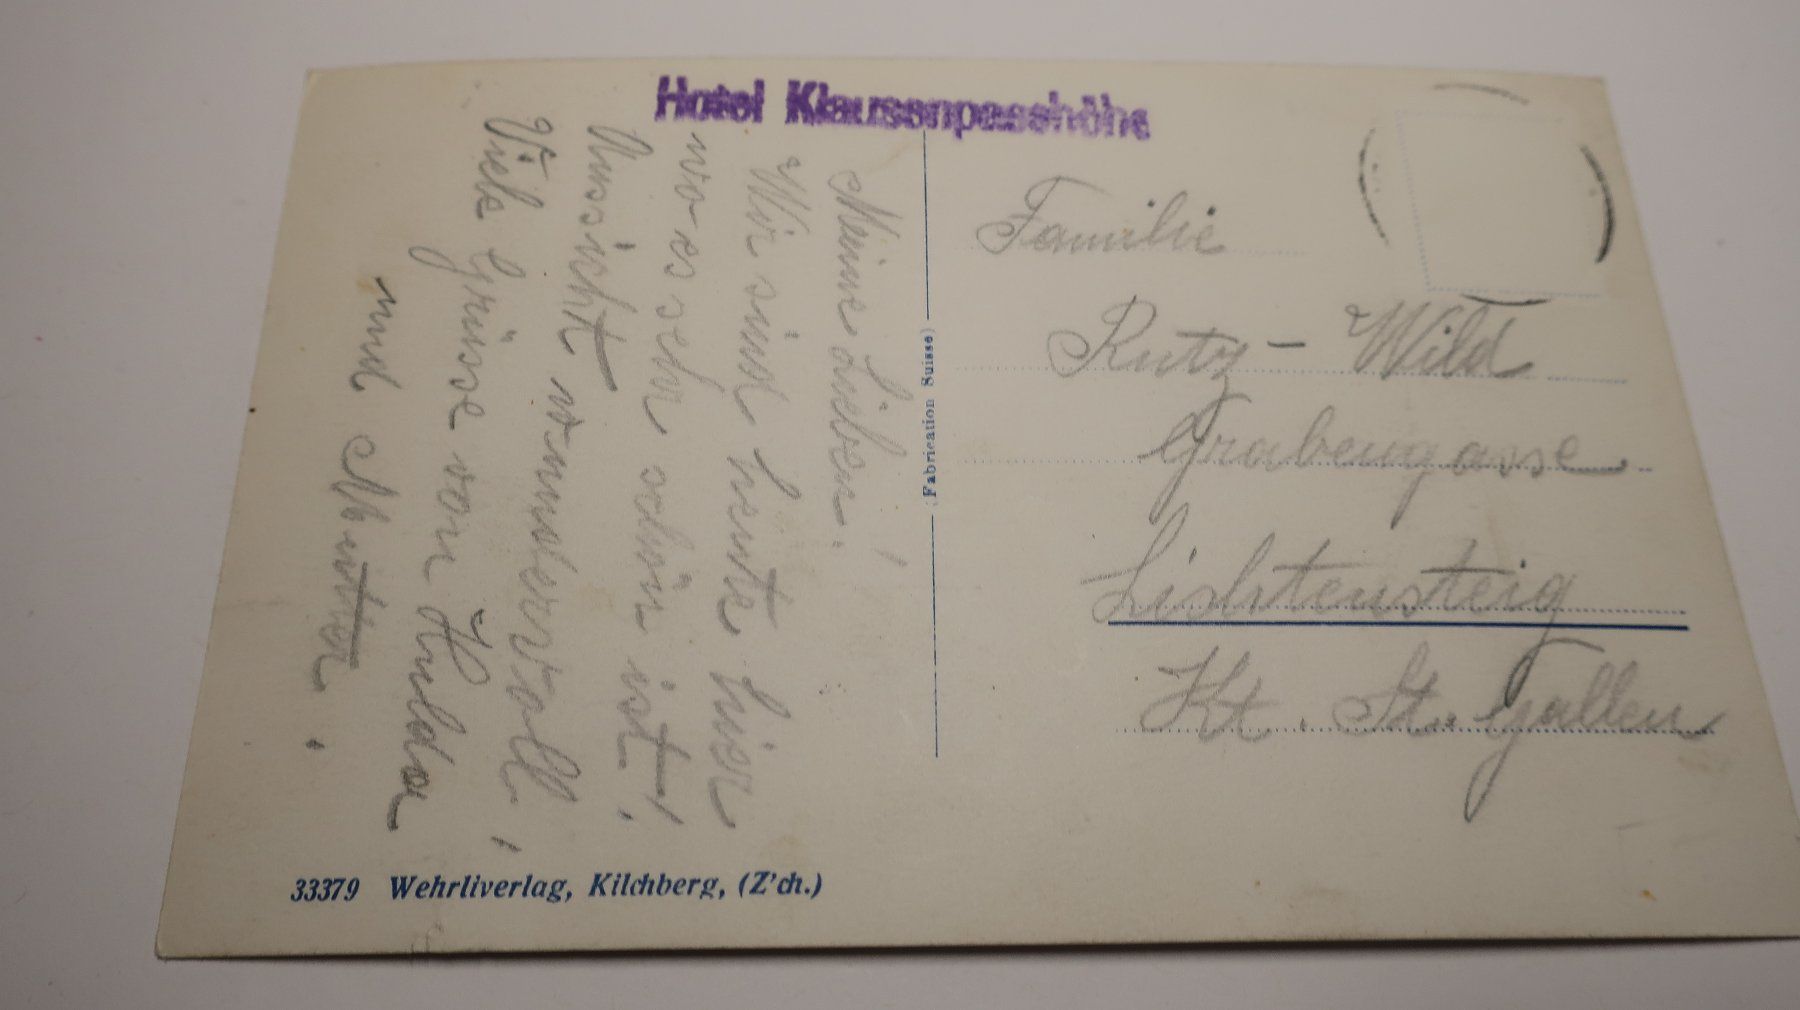 Hotel Klausenpasshöhe
Meine Lieben!
Wir sind heute hier
wo es sehr schön ist!
Aussicht wundervoll,
Viele Grüsse von Hulda
und Mutter.
(Fabrication Suisse)
Familie
Rutz - Wild
Grabengasse
Lichtensteig
Kt. St. Gallen
33379 Wehrliverlag, Kilchberg, (Z'ch.)